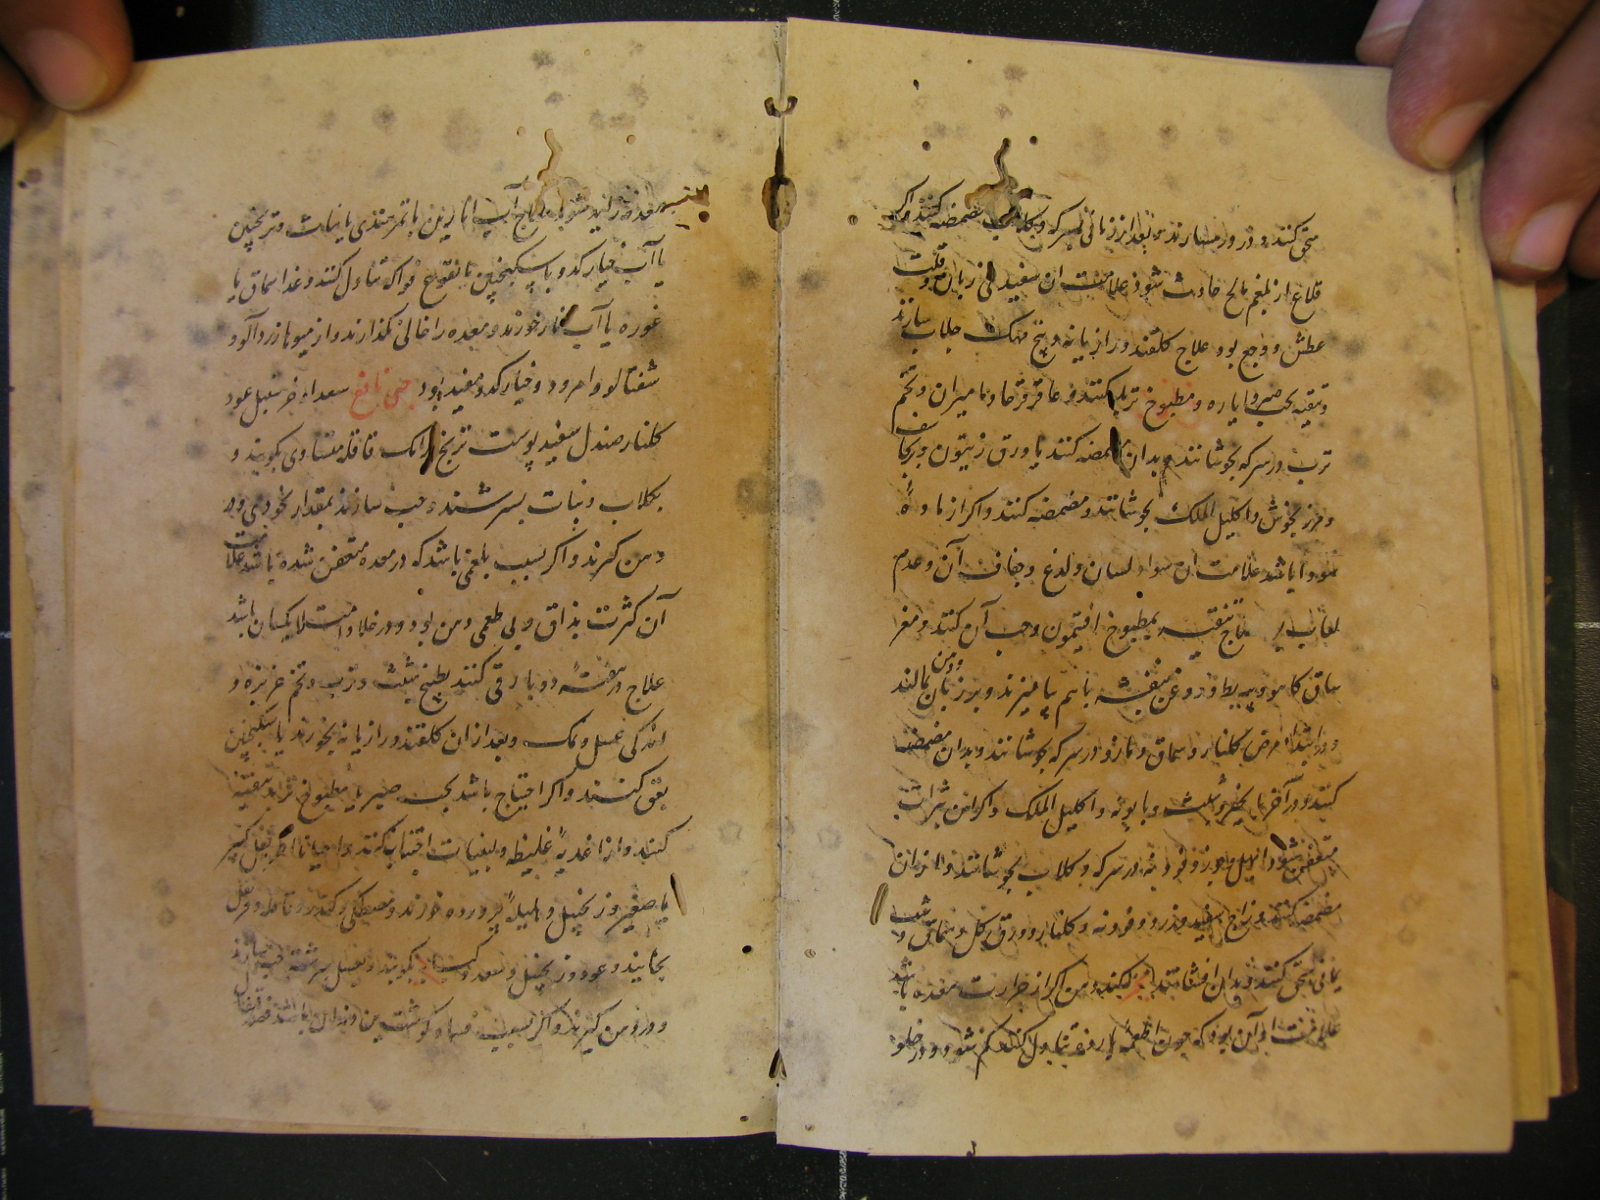 سحق کنند و در دهن دارند و بعد از زمانی بسرکه و گلاب مضمضه کنند و اگر
قلاع از بلغم مالح حادث شود علامت آن سفیدی زبان و قلت
عطش و وجع بود علاج گلقند و رازیانه و بیخ مهک جلاب سازند
و تنقیه بحب صبر و ایاره و مطبوخ تربد کنند و عاقرقرحا و مامیران و تخم
ترب در سرکه بجوشانند و بدان مضمضه کنند یا ورق زیتون و
و مرزنجوش و اکلیل الملک بجوشانند و مضمضه کنند و اگر از ماده
سودا باشد علامت آن سواد لسان و لدغ و جفاف آن و عدم
لعاب بود علاج تنقیه بمطبوخ افتیمون و حب آن کنند و مغز
ساق گاو و پیه بط و روغن بنفشه باهم بیامیزند و بر زبان و دهن مالند
و در ابتدا مرض گلنار و سماق و مازو در سرکه بجوشانند و بدان مضمضه
کنند و در آخر بانجیر و شبت و بابونه و اکلیل الملک و اگر این بثرات
متعفن شود در سرکه و گلاب بجوشانند و از آن
مضمضه کنند و زاج سفید و گلنار و ورق گل و سماق و شب
یمانی سحق کنند و بدان افشانند بخر دهن اگر از حرارت معده باشد
علامت آن بود که چون اطعمه بارده تناول کنند کم شود و در خلو
معده زاید شود علاج آب انارین با تمرهندی یا نبات و ترنجبین
یا آب خیار کدو با سکنجبین یا نقوع فواکه تناول کنند و غدا سماق یا
غوره یا آب انار خورند و معده را خالی نگذارند و از میوها زردآلو و
شفتالو و امرود و خیار کدو مفید بود حبی نافع سعد اذخر سنبل عود
گلنار صندل سفید پوست ترنج قاقله متساوی بکوبند و
بگلاب و نبات بسرشند و حب سازند بمقدار نخودی و در
دهن گیرند و اگر بسبب بلغمی باشد که در معده متعفن شده باشد علامت
آن کثرت بذاق و بی طعمی دهن بود و در خلا و امتلا یکسان باشد
علاج در هفته دو بار قی کنند بطبیخ شبت و ترب و تخم خربزه و
اندکی عسل و نمک و بعد از آن گلقند و رازیانه بخورند یا سکنجبین
کنند و اگر احتیاج باشد بحب صبر یا مطبوخ تربد تنقیه
کنند و از اغذیه غلیظه و لبنیات اجتناب کنند و احیانا اطریفل کبیر
یا صغیر و زنجبیل و هلیله پرورده خورند و مصطکی و کندر و قاقله و قرنفل
بخایند و عود و زنجبیل و سعد و بکوبند و بعسل سرشته حب سازند
و در دهن گیرند و اگر بسبب فساد گوشت بن دندان باشد